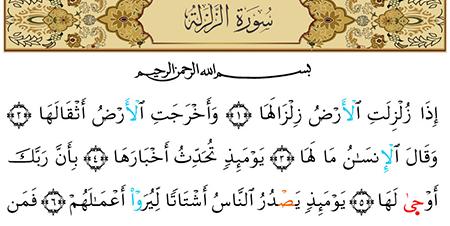 سُورَةُ الزَّلْزَلَةِ
بِسْمِ اللَّهِ الرَّحْمَٰنِ الرَّحِيمِ
إِذَا زُلْزِلَتِ ٱلْأَرْضُ زِلْزَالَهَا ﴿١﴾ وَأَخْرَجَتِ ٱلْأَرْضُ أَثْقَالَهَا ﴿٢﴾
وَقَالَ ٱلْإِنسَٰنُ مَا لَهَا ﴿٣﴾ يَوْمَئِذٍ تُحَدِّثُ أَخْبَارَهَا ﴿٤﴾ بِأَنَّ رَبَّكَ
أَوْحىٰ لَهَا ﴿٥﴾ يَوْمَئِذٍ يَصْدُرُ النَّاسُ أَشْتَاتًا لِّيُرَوْاْ أَعْمَٰلَهُمْ ﴿٦﴾ فَمَن